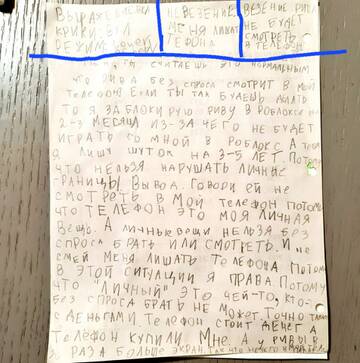 ВЫРАЖЕНИЕ НЕ ВЕЗЕНИЕ ВЕЗЕНИЕ РИВЫ
КРИВОЙ МЕНЯ ЛИШАТ НЕ БУДЕТ
РЕЖИМ ТЕЛЕФОНА СМОТРЕТЬ
В ТЕЛЕФОН
ТЫ СЧИТАЕШЬ ЭТО НОРМАЛЬНЫМ
ЧТО РИВА БЕЗ СПРОСА СМОТРИТ В МОЙ
ТЕЛЕФОН? ЕСЛИ ТЫ ТАК БУДЕШЬ ДЕЛАТЬ
ТО Я ЗАБЛОКИРУЮ РИВУ В РОБЛОКСЕ НА
2-3 МЕСЯЦА ИЗ-ЗА ЧЕГО НЕ БУДЕТ
ИГРАТЬ СО МНОЙ В РОБЛОКС А ТЕБЯ
Я ЛИШУ ШУТОК НА 3-5 ЛЕТ. ПОТОМУ
ЧТО НЕЛЬЗЯ НАРУШАТЬ ЛИЧНЫЕ
ГРАНИЦЫ. ВЫВОД. ГОВОРИ ЕЙ НЕ
СМОТРЕТЬ В МОЙ ТЕЛЕФОН ПОТОМУ
ЧТО ТЕЛЕФОН ЭТО МОЯ ЛИЧНАЯ
ВЕЩЬ. А ЛИЧНЫЕ ВЕЩИ НЕЛЬЗЯ БЕЗ
СПРОСА БРАТЬ ИЛИ СМОТРЕТЬ. И НЕ
СМЕЙ МЕНЯ ЛИШАТЬ ТЕЛЕФОНА ПОТОМУ
В ЭТОЙ СИТУАЦИИ Я ПРАВА. ПОТОМУ
ЧТО "ЛИЧНЫЙ" ЭТО ЧЕЙ-ТО, КТО-
БЕЗ СПРОСА БРАТЬ НЕ МОЖЕТ. ТОЧНО ТАКЖЕ
С ДЕНЬГАМИ. ТЕЛЕФОН СТОИТ ДЕНЕГ А
ТЕЛЕФОН КУПИЛИ МНЕ. А У РИВЫ В
РАЗА БОЛЬШЕ ЭКРАН. ТАК ЧТО